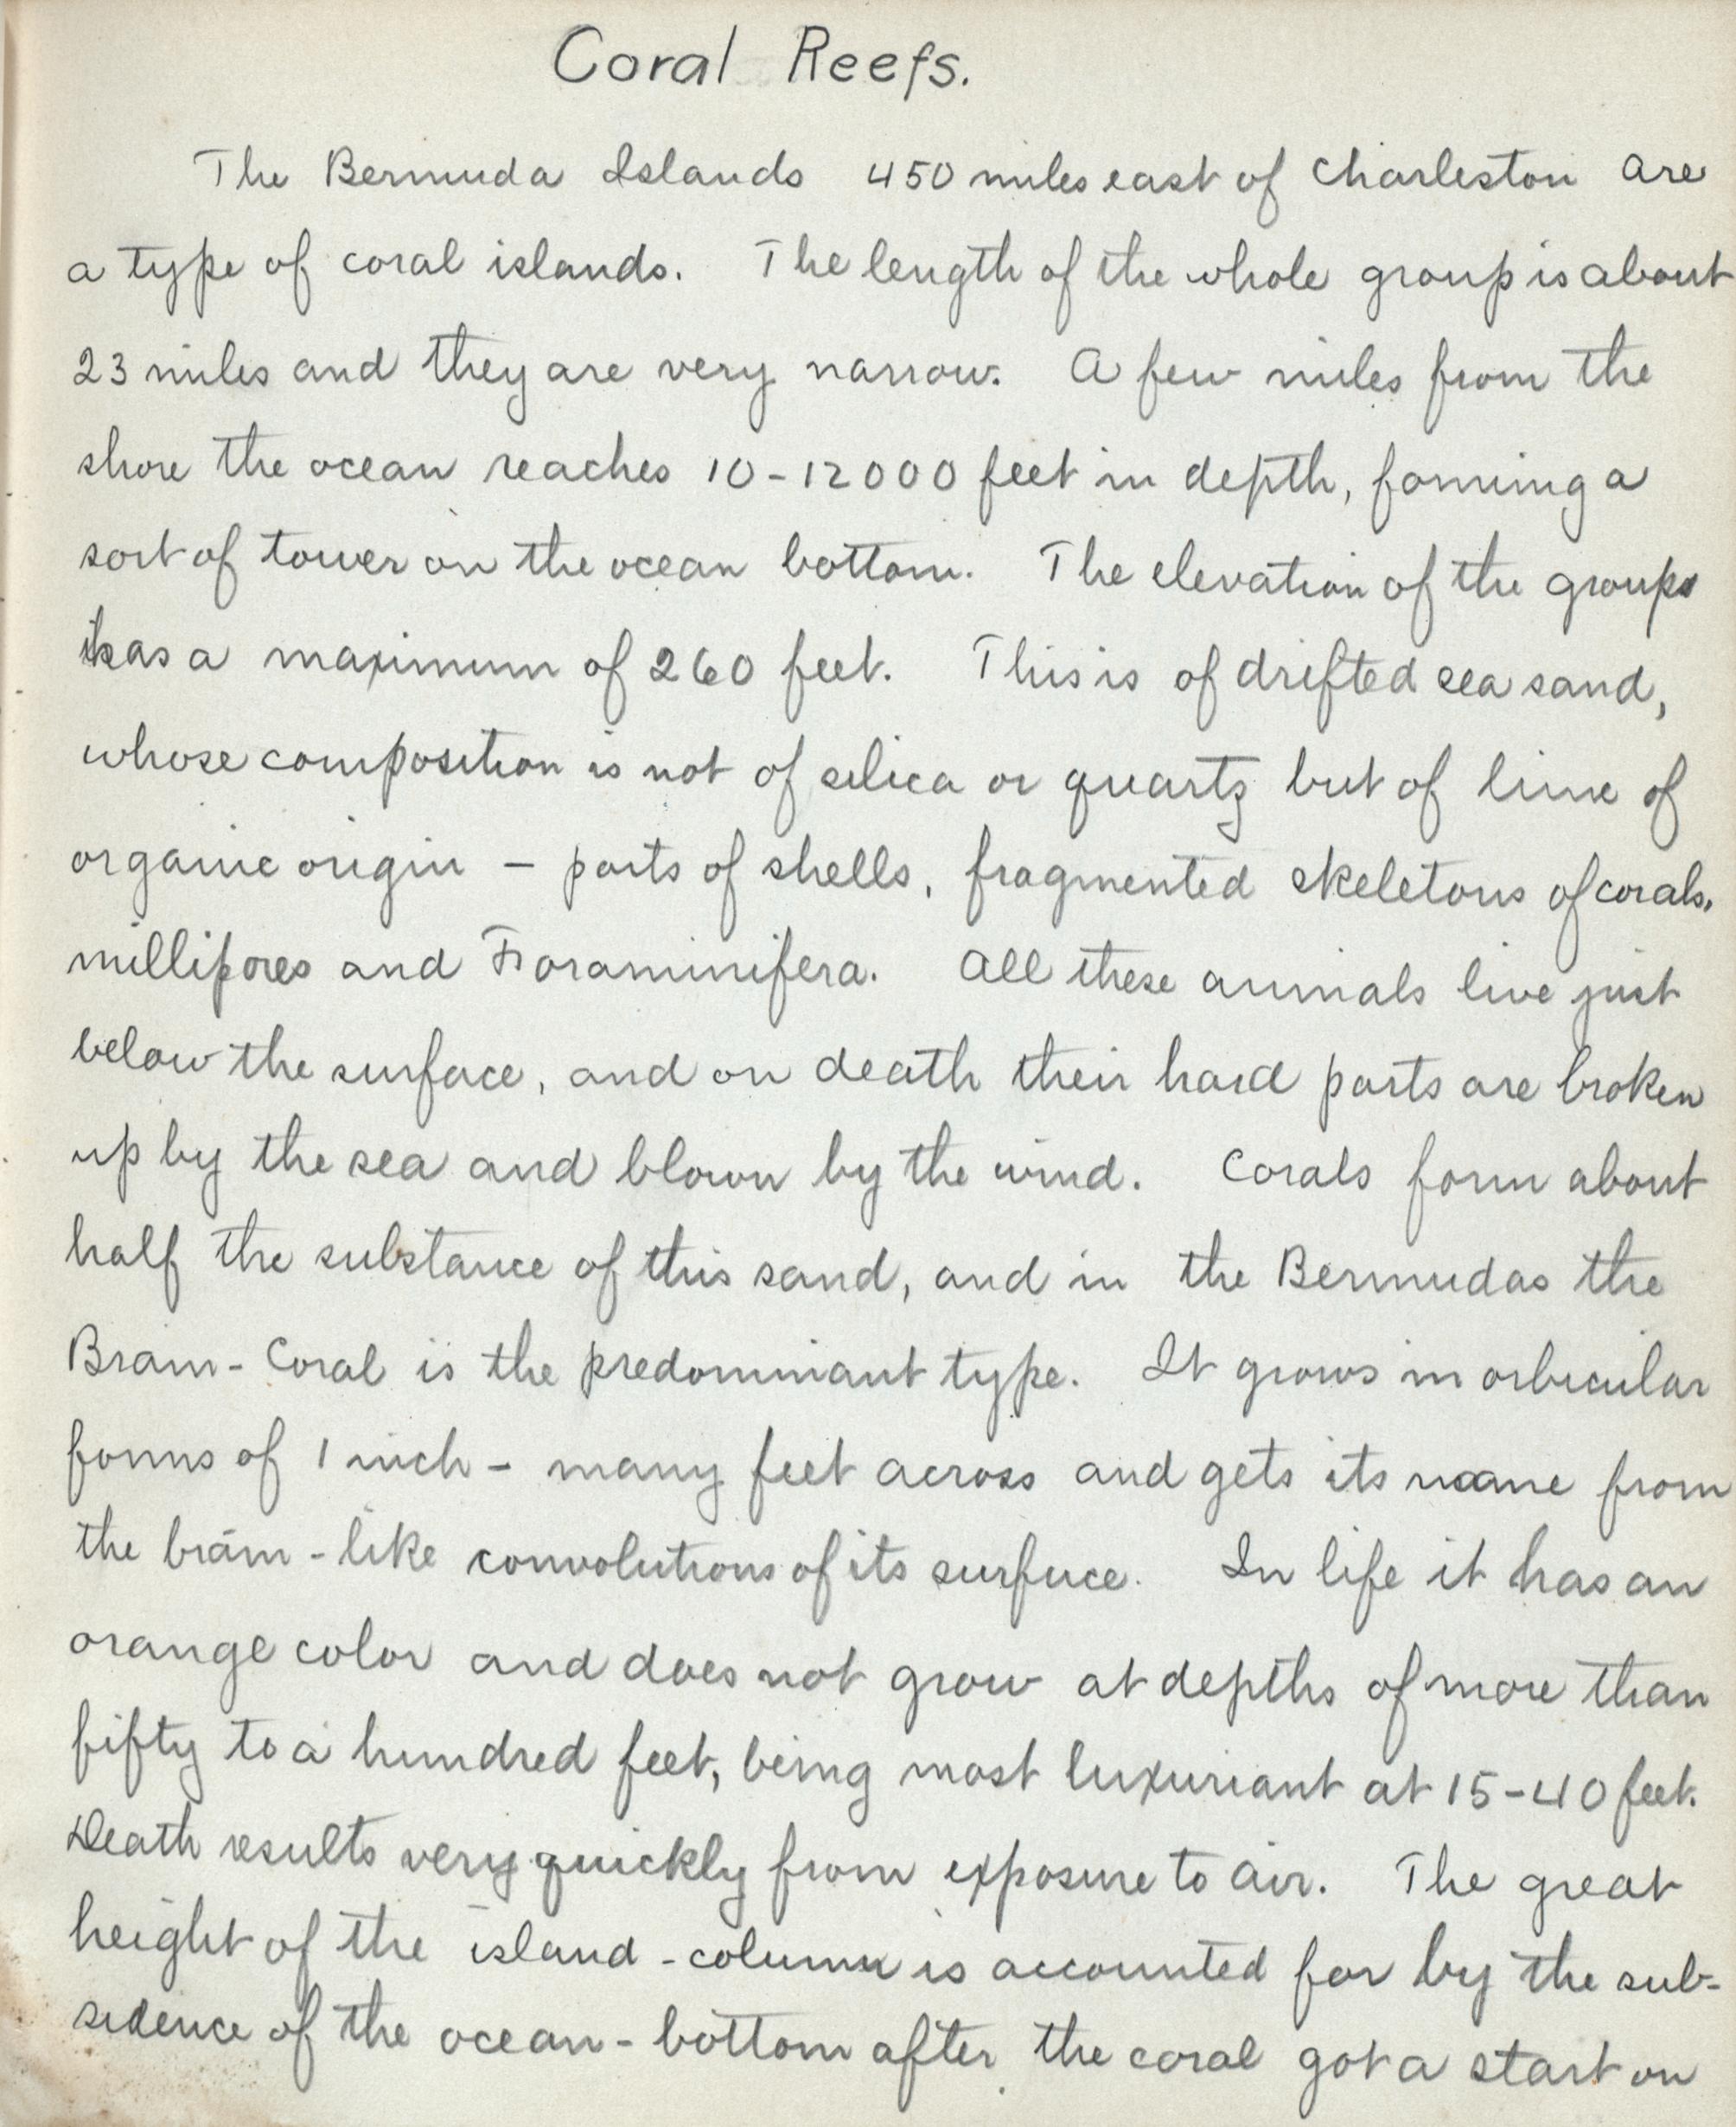 Coral Reefs.
The Bermuda Islands 450 miles east of Charleston are
a type of coral islands. The length of the whole group is about
23 miles and they are very narrow. A few miles from the
shore the ocean reaches 10-12000 feet in depth, forming a
sort of tower on the ocean bottom. The elevation of the groups
has a maximum of 260 feet. This is of drifted sea sand,
whose composition is not of silica or quartz but of lime of
organic origin - parts of shells, fragmented skeletons of corals,
millipores and Foraminifera. All these animals live just
below the surface, and on death their hard parts are broken
up by the sea and blown by the wind. Corals form about
half the substance of this sand, and in the Bermudas the
Brain-Coral is the predominant type. It grows in orbicular
forms of 1 inch - many feet across and gets its name from
the brain-like convolutions of its surface. In life it has an
orange color and does not grow at depths of more than
fifty to a hundred feet, being most luxuriant at 15-40 feet.
Death results very quickly from exposure to air. The great
height of the island-column is accounted for by the sub-
sidence of the ocean-bottom after the coral got a start on